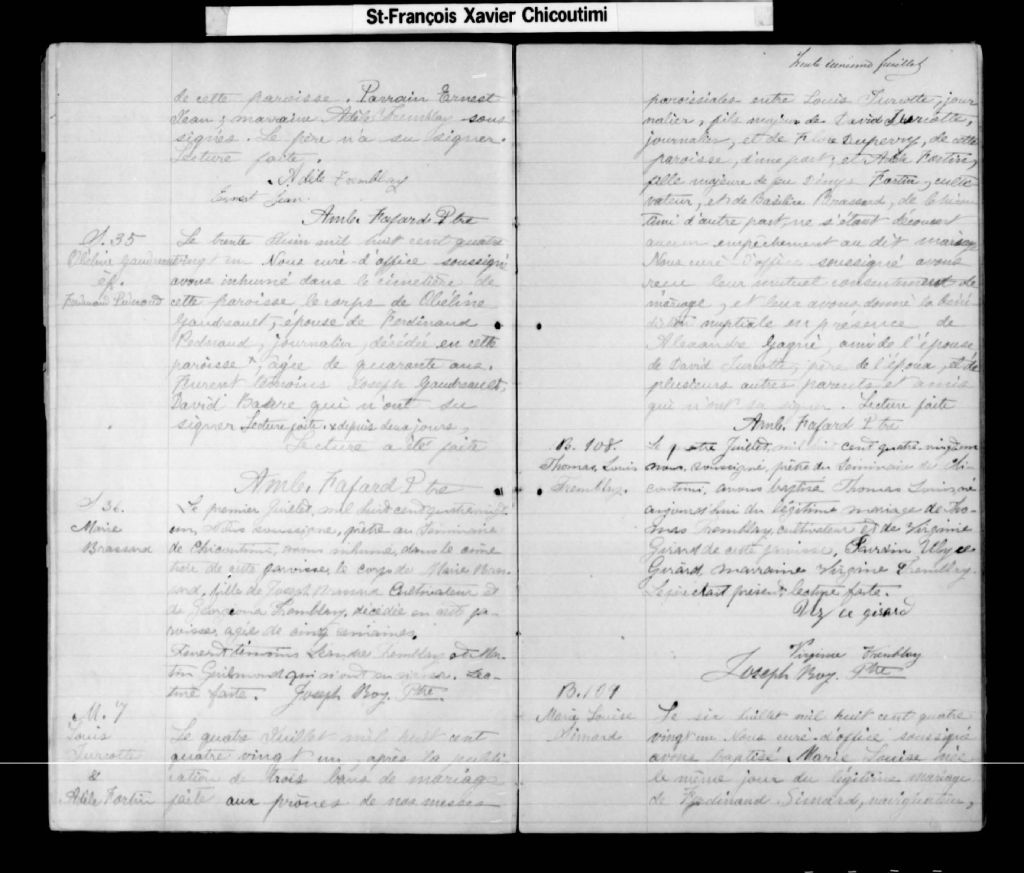 St-François Xavier Chicoutimi
de cette paroisse. Parrain Ernest
Jean, marraine Adèle Tremblay sous
signés. Le père n'a su signer.
Lecture faite.
Adèle Tremblay
Ernest Jean
Amb. Fafard Ptre
S. 35
Obéline Gaudreault
ép.
Ferdinand
Le trente Juin mil huit cent quatre
vingt un Nous curé d'office soussigné
avons inhumé dans le cimetière de
cette paroisse le corps de Obéline
Gaudreault, épouse de Ferdinand
journalier, décédée en cette
paroisse x, âgée de quarante ans.
Furent témoins Joseph Gaudreault,
David qui n'ont su
signer Lecture faite. x depuis deux jours,
Lecture a été faite
Amb. Fafard Ptre
S 36.
Marie
Brassard
Le premier Juillet, mil huit cent quatre vingt
un, Nous soussigné, prêtre au Séminaire
de Chicoutimi, avons inhumé, dans le cime
tière de cette paroisse, le corps de Marie Bras
sard, fille de Joseph Brassard Cultivateur et
de Georgiana Tremblay, décédée en cette pa
roisse, agée de cinq semaines.
Furent témoins Tremblay et Mar
tin qui n'ont su signer. Lec
ture faite. Joseph Roy. Ptre.
M. 7
Louis
Turcotte
&
Adèle Fortin
Le quatre Juillet mil huit cent
quatre vingt un, après la publi
cation de trois bans de mariage
faite aux prônes de nos messes
Trente deuxième feuillet
paroissiales entre Louis Turcotte, jour
nalier, fils majeur de David Turcotte,
journalier, et de Flore Duperry, de cette
paroisse, d'une part; et Adèle Fortin,
fille majeure de feu Fortin, culti
vateur, et de Basilice Brassard, de Chicou
timi d'autre part, ne s'étant découvert
aucun empêchement au dit mariage
Nous curé d'office soussigné avons
reçu leur mutuel consentement de
mariage, et leur avons donné la béné
diction nuptiale en présence de
Alexandre Gagné, ami de l'épouse
de David Turcotte, père de l'époux, et de
plusieurs autres parents et amis
qui n'ont su signer. Lecture faite
Amb. Fafard Ptre
B. 108.
Thomas Louis
Tremblay.
Le quatre Juillet, mil huit cent quatre vingt un
nous, soussigné, prêtre du Séminaire de Chi
coutimi, avons baptisé Thomas Louis, né
aujourd'hui du légitime mariage de Tho
mas Tremblay, cultivateur et de Virginie
Girard de cette paroisse, Parrain Ulysse
Girard marraine Virginie Tremblay.
Le père étant présent, lecture faite.
girard
Virginie Tremblay
Joseph Roy. Ptre
B. 109
Marie Louise
Simard
Le six Juillet mil huit cent quatre
vingt un Nous curé d'office soussigné
avons baptisé Marie Louise née
le même jour du légitime mariage
de Ferdinand Simard, navigateur,